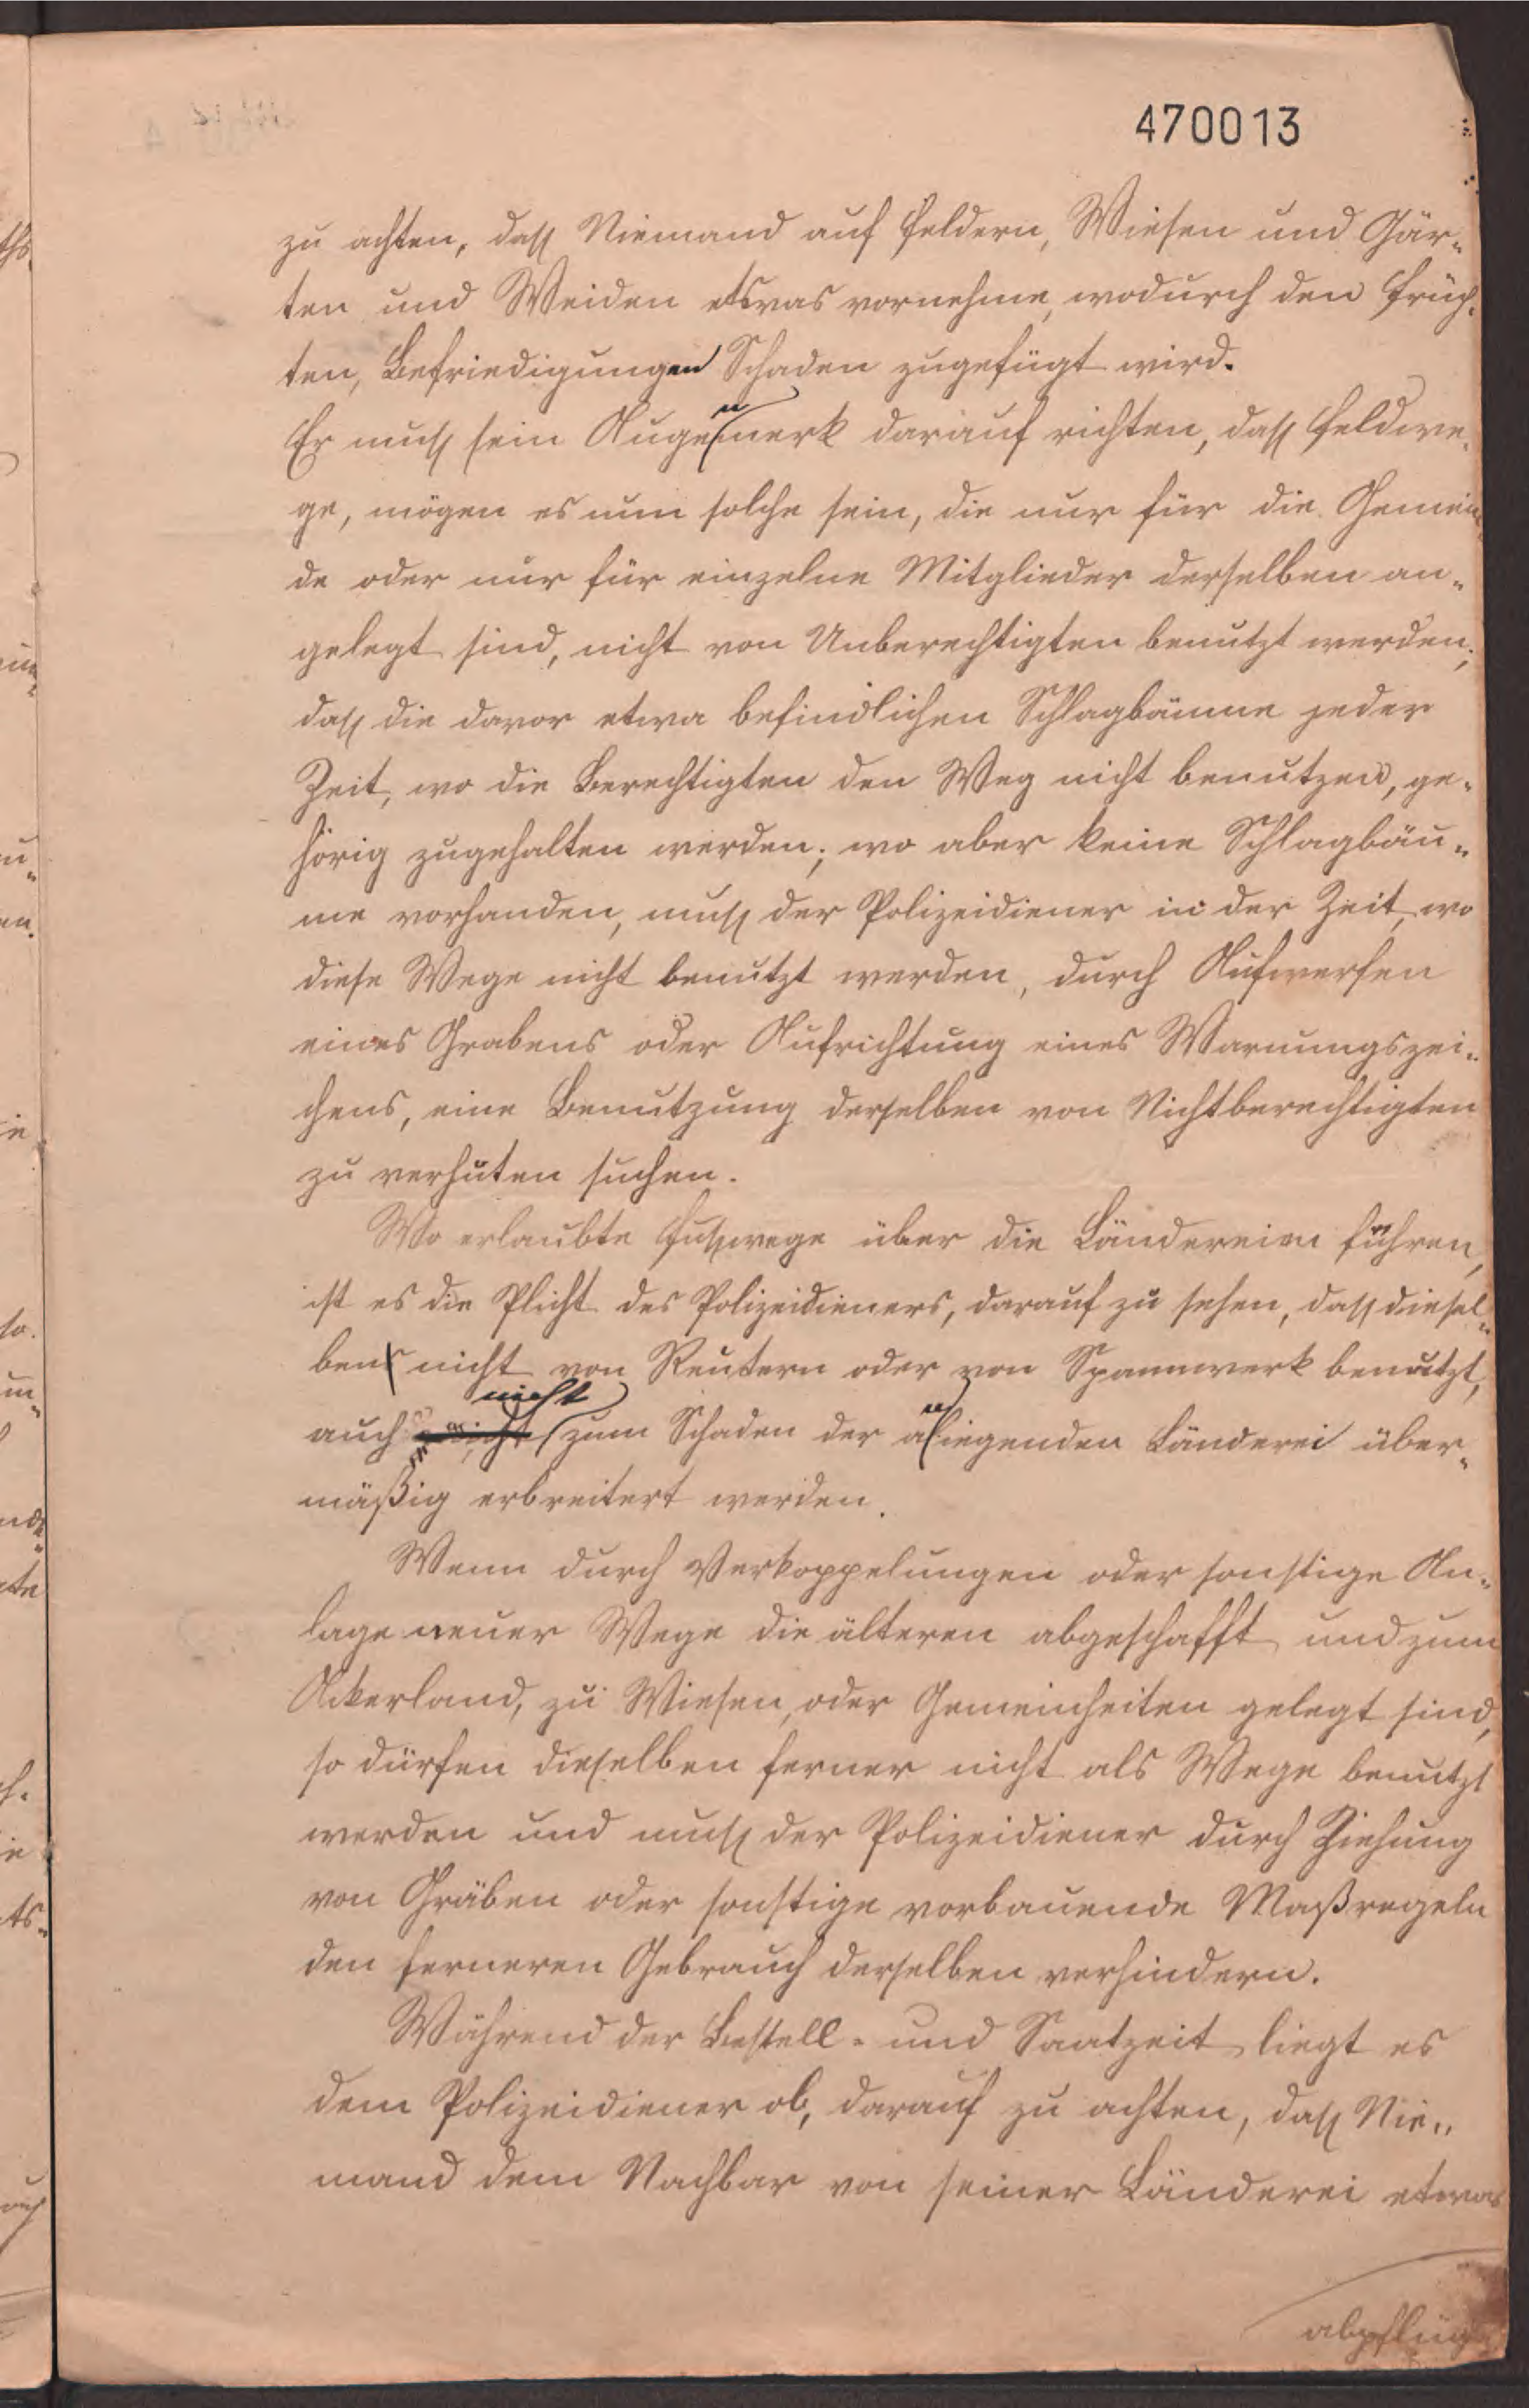 470013
zu achten, dass Niemand auf Feldern, Wiesen und Gär„
ten und Weiden etwas vornehme, wodurch den Früch„
ten, Befriedigungen Schaden zugefügt wird.
Er muss sein Augenmerk darauf richten, dass Feldwe„
ge, mögen es nun solche sein, die nur für die Gemein„
de oder nur für einzelne Mitglieder derselben an„
gelegt sind, nicht von Unberechtigten benutzt werden;
dass die davor etwa befindlichen Schlagbäume jeder
Zeit, wo die Berechtigten den Weg nicht benutzen, ge„
hörig zugehalten werden; wo aber keine Schlagbäu„
me vorhanden, muss der Polizeidiener in der Zeit, wo
diese Wege nicht benutzt werden, durch Aufwerfen
eines Grabens oder Aufrichtung eines Warnungszei„
chens, eine Benutzung derselben von Nichtberechtigten
zu verhuten suchen.
Wo erlaubte Fusswege über die Ländereien führen,
ist es die Plicht des Polizeidieners, darauf zu sehen, dass diesel„
ben nicht von Reutern oder von Spannwerk benutzt,
auch nicht zum Schaden der anliegenden Länderei über„
mäßig erbreitert werden.
Wenn durch Verkoppelungen oder sonstige An„
lage neuer Wege die älteren abgeschafft und zum
Ackerland, zu Wiesen, oder Gemeinheiten gelegt sind,
so dürfen dieselben ferner nicht als Wege benutzt
werden und muss der Polizeidiener durch Ziehung
von Gräben oder sonstige vorbauende Maßregeln
den ferneren Gebrauch derselben verhindern.
Während der Bestell- und Saatzeit liegt es
dem Polizeidiener ob, darauf zu achten, dass Nie„
mand dem Nachbar von seiner Länderei etwas